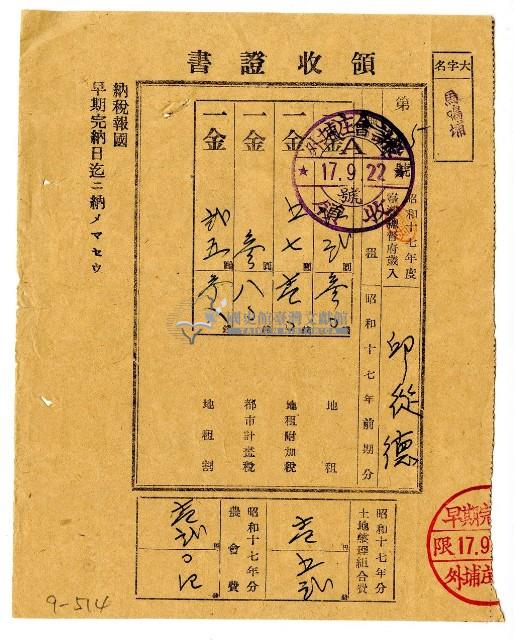 領收證書
大字名
馬鳴埔
第
號
外埔庄會計
A
17.9.22
號
收領
昭和十七年度
臺灣總督府歲入
租
昭和十七年前期分
邱從德
一金
參〇
地租
一金
五七
壱
地租附加稅
一金
參
八〇
都市計畫稅
一金
弍五
地租割
納稅報國
早期完納日迄ニ納メマセウ
昭和十七年分
土地整理組合費
壱
五弍
昭和十七年分
農會費
壱弍
早期完
限17.9
外埔庄
國史館臺灣文獻館
9-514